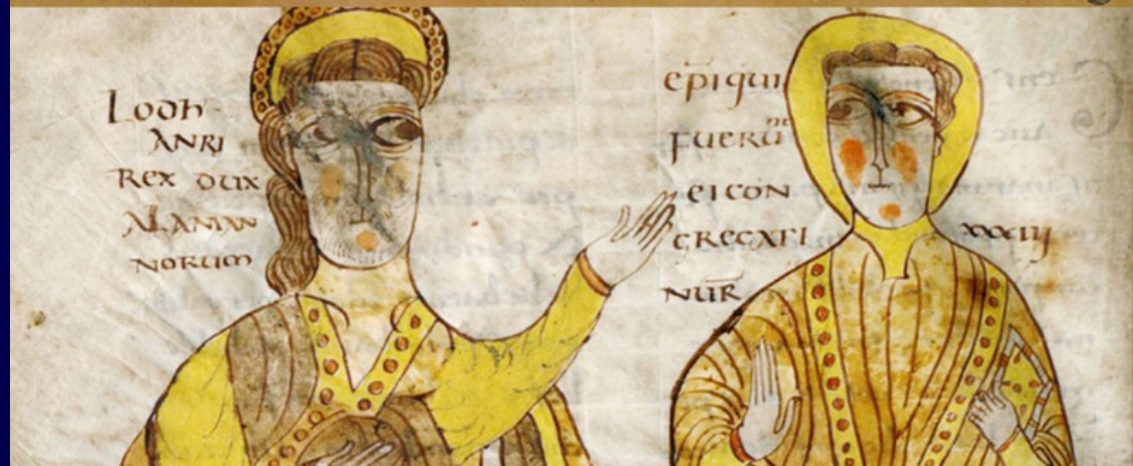 Lodh
ANRI
REX DUX
ALAMAN
NORUM
epi qui
FUERUN̄
EI CON
GREGATI
XXXIIJ
NUR̄